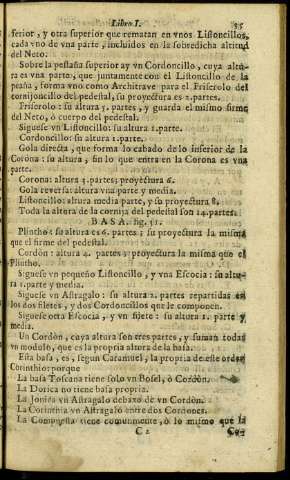 Libro I. 35
ferior, y otra superior que rematan en vnos Listoncillos,
cada vno de vna parte, incluidos en la sobredicha altitud
del Neto.
Sobre la pestaña superior ay vn Cordoncillo, cuya altu-
ra es vna parte, que juntamente con el Listoncillo de la
peaña, forma vno como Architrave para el Friserolo del
cornijoncillo del pedestal, su proyectura es 2. partes.
Friserolo: su altura 5. partes, y guarda el mismo firme
del Neto, ò cuerpo del pedestal.
Siguese vn Listoncillo: su altura 1. parte.
Cordoncillo: su altura 1. parte.
Gola directa, que forma lo cabado de lo inferior de la
Corona: su altura, sin lo que entra en la Corona es vna
parte.
Corona: altura 3. partes; proyectura 6.
Gola reversa: altura vna parte y media.
Listoncillo: altura media parte, y su proyectura 8.
Toda la altura de la cornija del pedestal son 14. partes.
BASA. fig. 51.
Plintho: su altura es 6. partes; su proyectura la misma
que el firme del pedestal.
Cordòn: altura 4. partes; proyectura la misma que el
Plintho.
Siguese vn pequeño Listoncillo, y vna Escocia: su altu-
ra 1. parte y media.
Siguese vn Astragalo: su altura 2. partes repartidas en
los dos filetes, y dos Cordoncillos que le componen.
Siguese otra Escocia, y vn fijete: su altura 1. parte y
media.
Un Cordòn, cuya altura son tres partes, y suman todas
vn modulo, que es la propria altura de la basa.
Esta basa, es, segun Caramuel, la propria de este orden
Corinthio: porque
La basa Toscana tiene solo vn Bosel, ò Cordòn.
La Dorica no tiene basa propria.
La Jonica vn Astragalo debaxo de vn Cordòn.
La Corinthia vn Astragalo entre dos Cordones.
La Compuesta tiene comunmente, ò lo mismo que la
C 2